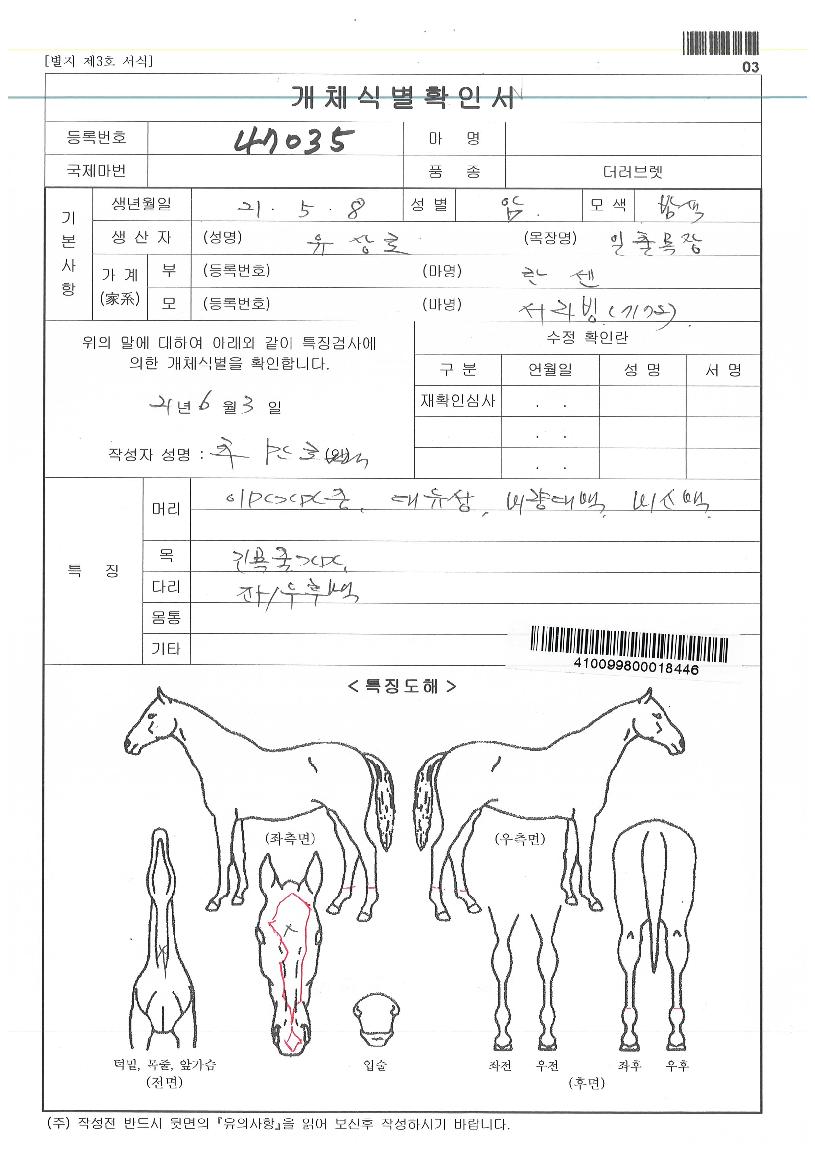 [별지 제3호 서식]
03
개체식별확인서
등록번호 47035 마 명
국제마번 품 종 더러브렛
기본사항
생년월일 21 . 5 . 8 성 별 암 . 모 색 밤색
생 산 자 (성명) 유상로 (목장명) 일출목장
가 계 (家系) 부 (등록번호) (마명) 한센
모 (등록번호) (마명) 서라빙
위의 말에 대하여 아래와 같이 특징검사에
의한 개체식별을 확인합니다.
21년 6 월 3 일
작성자 성명 :
수정 확인란
구 분 연월일 성 명 서 명
재확인심사 . .
. .
. .
특 징
머리 대유성, 비량대백, 비신백
목
다리 좌/우후백
몸통
기타
410099800018446
< 특징도해 >
(좌측면) (우측면)
턱밑, 목줄, 앞가슴
(전면)
입술
좌전 우전 좌후 우후
(후면)
(주) 작성전 반드시 뒷면의 『유의사항』을 읽어 보신후 작성하시기 바랍니다.